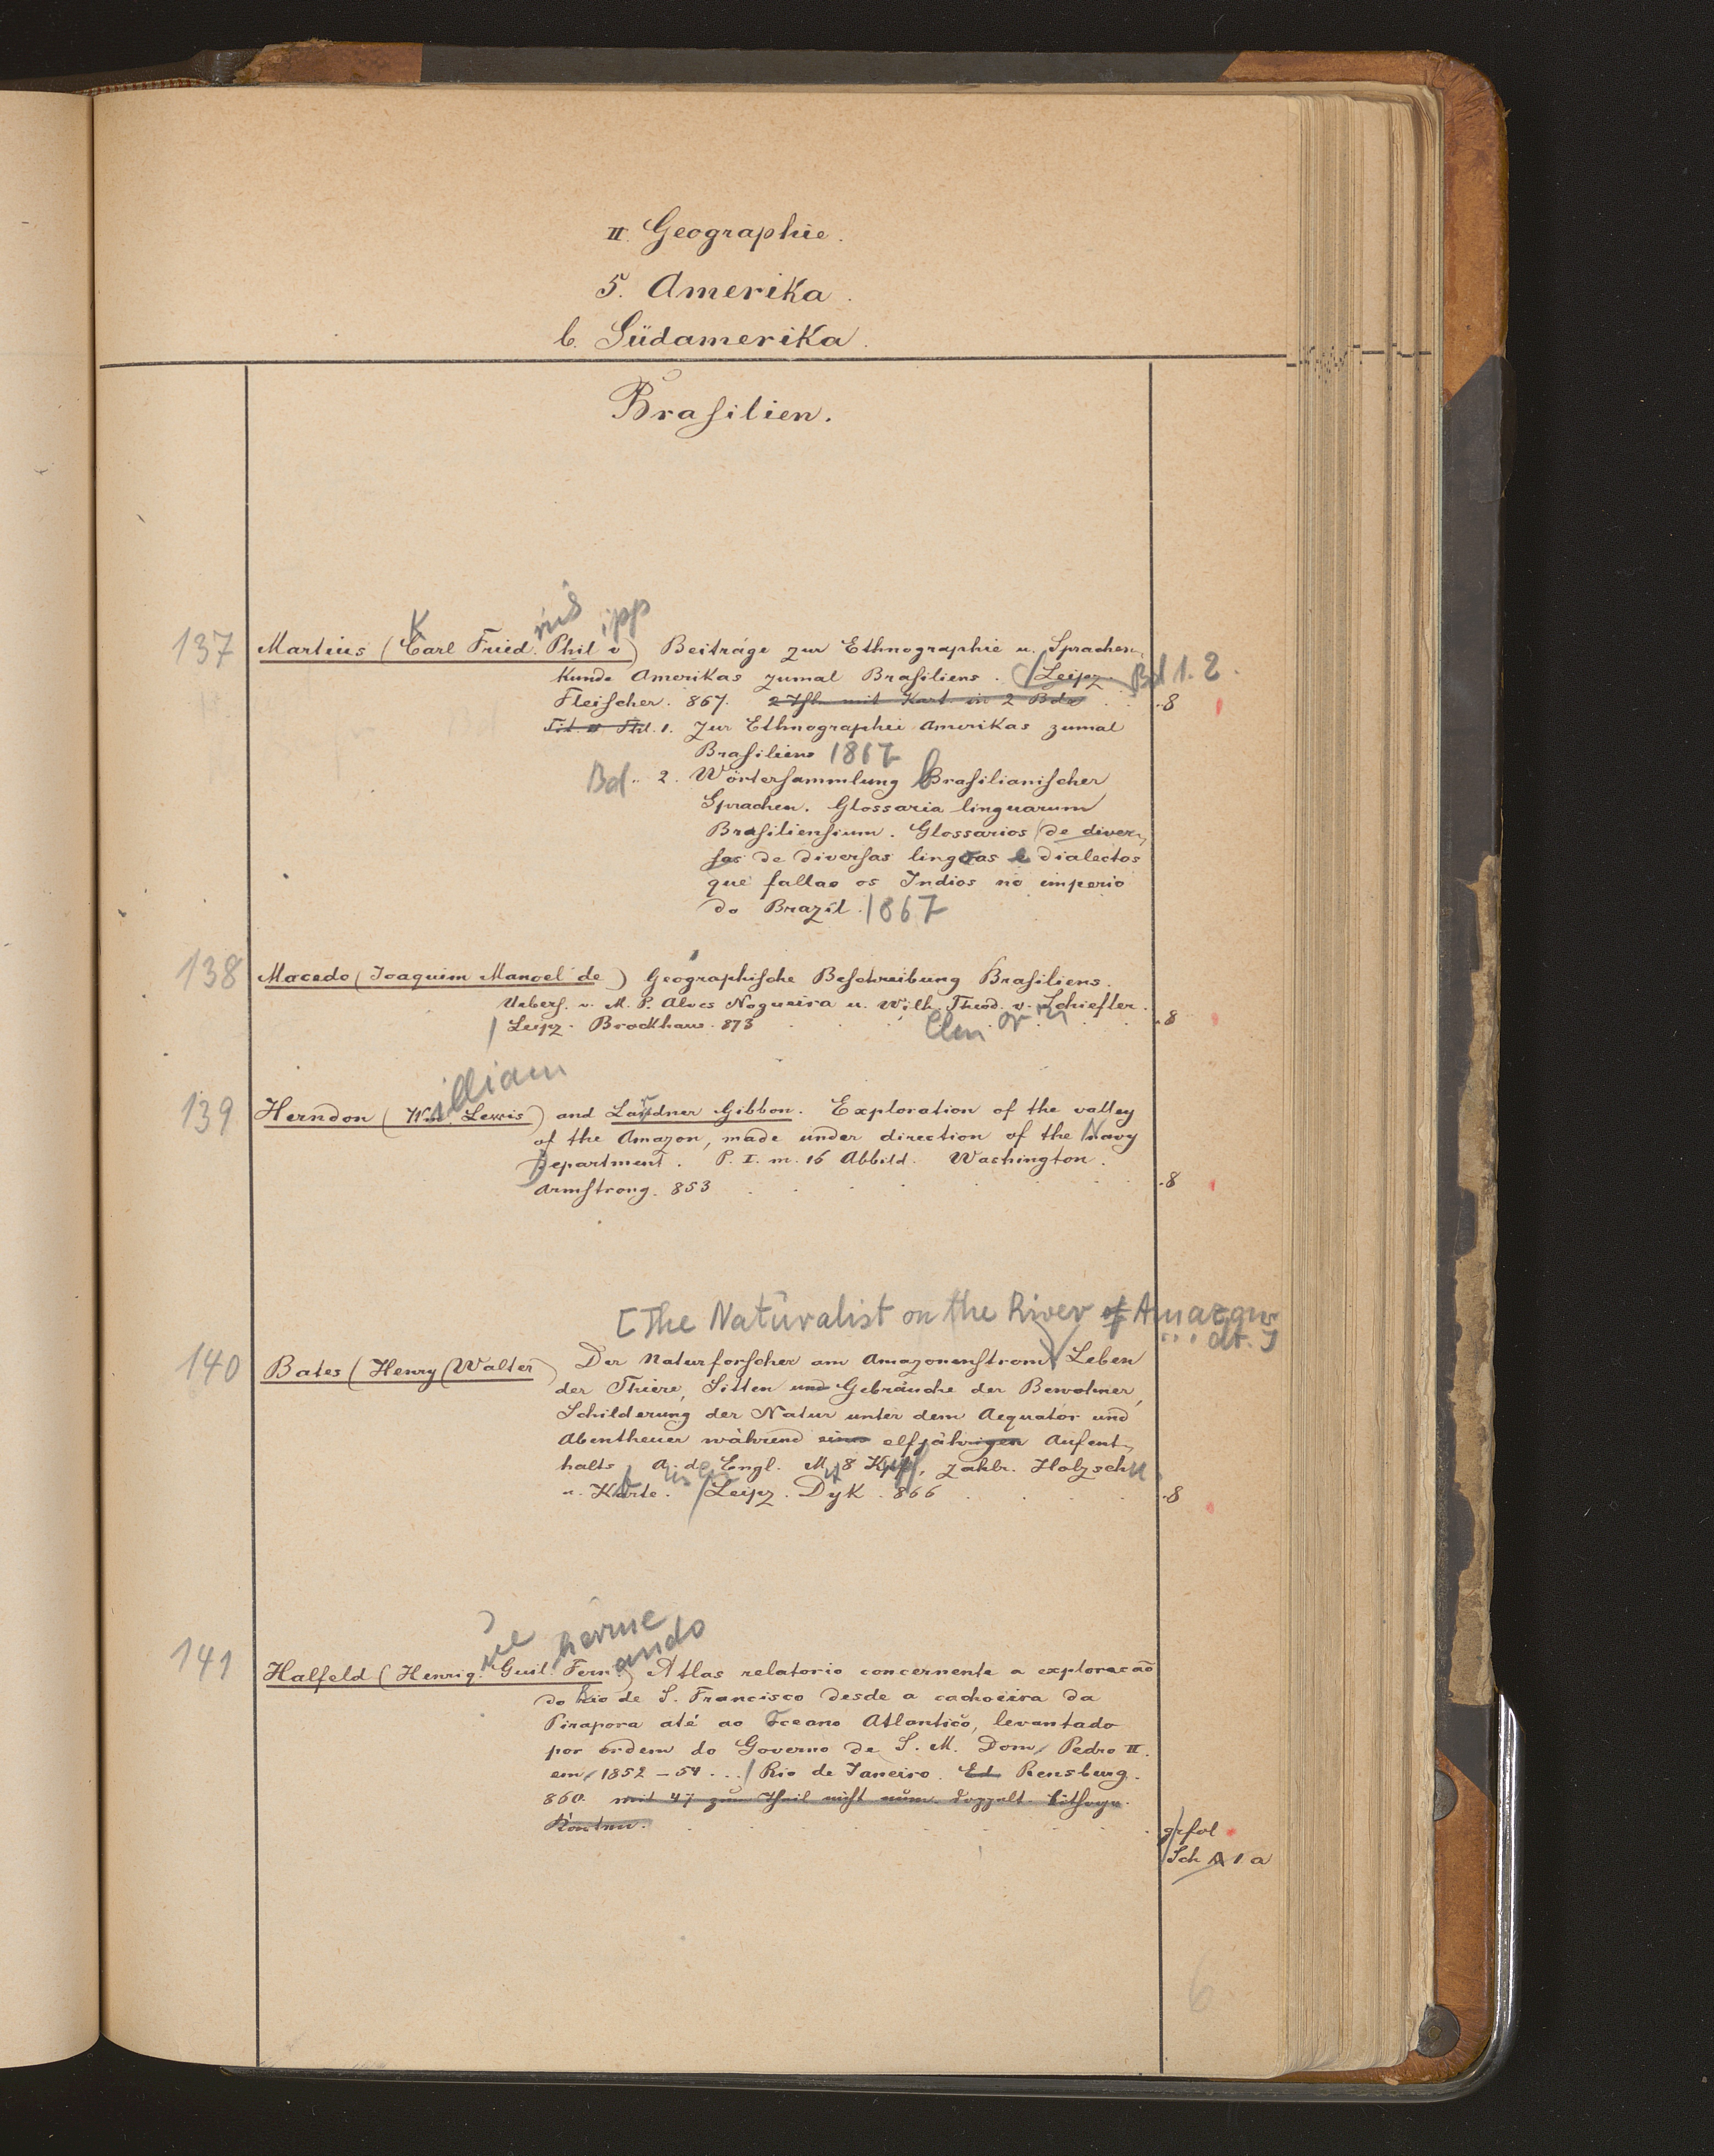 II. Geographie.
5. Amerika.
b. Südamerika.
Brasilien.
K rich ipp
137 Martius (Carl Fried. Phil v) Beiträge zur Ethnographie u. Sprachen-
kunde Amerikas zumal Brasiliens. Leipz. Bd 1. 2.
Fleischer. 867. 2 Thle mit Kart. in 2 Bde .8
Tit. Thl. 1. Zur Ethnographie Amerikas zumal
Brasiliens 1867
Bd. 2. Wörtersammlung Brasilianischer
Sprachen. Glossaria linguarum
Brasiliensium. Glossarios de diver-
sas de diversas lingoas e dialectos
que fallao os Indios no imperio
do Brazil. 1867
138 Macedo (Joaquim Manoel de) Geographische Beschreibung Brasiliens.
Uebers. v. M. P. Alves Nogueira u. Wilh. Theod. v. Schiefler.
Leipz. Brockhaus. 873 .8
illiam
139 Herndon (Wm. Lewis) and Lardner Gibbon. Exploration of the valley
of the Amazon, made under direction of the Navy
Department. P. I. m. 16 Abbild. Washington.
Armstrong. 853 .8
[The Naturalist on the River of Amazons
... dt.]
140 Bates (Henry Walter) Der Naturforscher am Amazonenstrom Leben
der Thiere, Sitten und Gebräuche der Bewohner,
Schilderung der Natur unter dem Aequator und
Abentheuer während eines elfjährigen Aufent-
halts A. d. Engl. M. 8 Kpf, zahlr. Holzschn
u. Karte. Leipz. Dyk. 866 .8
ue herme
ando
141 Halfeld (Henriq. Guil. Fern.) Atlas relatorio concernente a exploracão
do Rio de S. Francisco desde a cachoeira da
Pirapora até ao Oceano Atlantico, levantado
por ordem do Governo de S. M. Dom Pedro II.
em 1852-54... Rio de Janeiro. Ed. Rensburg.
860. mit 47 zum Theil nicht num. doppelt. Lithogr.
Karten.
grfol
Sch A 1 a
6